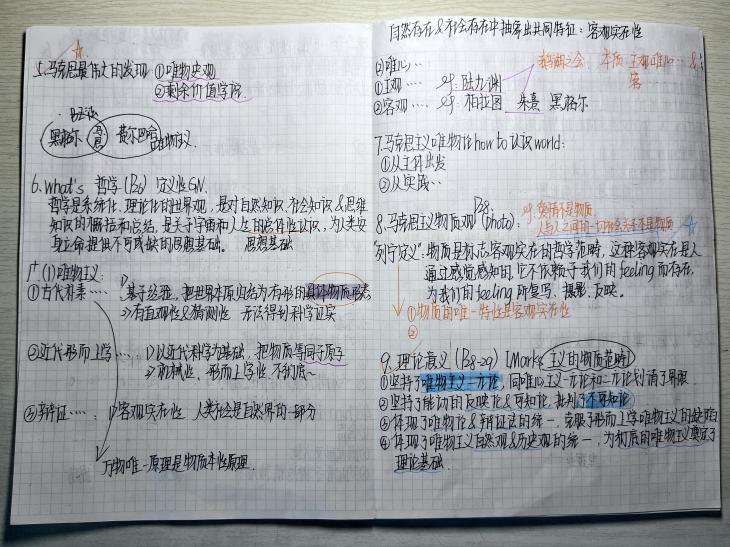 5.马克思最伟大的发现 ①唯物史观
②剩余价值学说
辩证法
黑格尔 马恩 费尔巴哈 唯物主义.
6. what's 哲学(B6) 定义性GN.
哲学是系统化、理论化的世界观,是对自然知识、社会知识&思维
知识的概括和总结,是关于宇宙和人生的总体性认识,为人类安
身立命提供不可或缺的思想基础。 思想基础
(1)唯物主义:
①古代朴素…… 1)基于经验,把世界本原归结为有形的具体物质形态
2)有直观性&猜测性 无法得到科学证实
②近代形而上学……:1)以近代科学为基础,把物质等同于原子
2)机械性、形而上学性、不彻底~
③辩证……:1)客观实在性 人类社会是自然界的一部分
万物唯一原理是物质本性原理.
自然存在&社会存在中抽象出共同特征:客观实在性
(2)唯心…
①主观… eg:陆九渊
②客观… eg:柏拉图 朱熹 黑格尔
鹅湖之会 本质 主观唯心…&
客…
7.马克思主义唯物论how to 认识world:
①从主体出发
②从实践…
8.马克思主义物质观(photo):
B8. eg:爱情不是物质
人与人之间的一切社会关系不是物质
"列宁定义":物质是标志客观实在的哲学范畴,这种客观实在是人
通过感觉感知的,它不依赖于我们的feeling而存在,
为我们的feeling所复写、摄影、反映。
①物质的唯一特性是客观实在性
②
9.理论意义(B8-29)(Marks主义的物质范畴)
①坚持了唯物主义一元论,同唯心主义一元论和二元论划清了界限
②坚持了能动的反映论&可知论,批判了不可知论
③体现了唯物论&辩证法的统一,克服了形而上学唯物主义的缺陷
④体现了唯物主义自然观&历史观的统一,为彻底的唯物主义奠定了
理论基础.